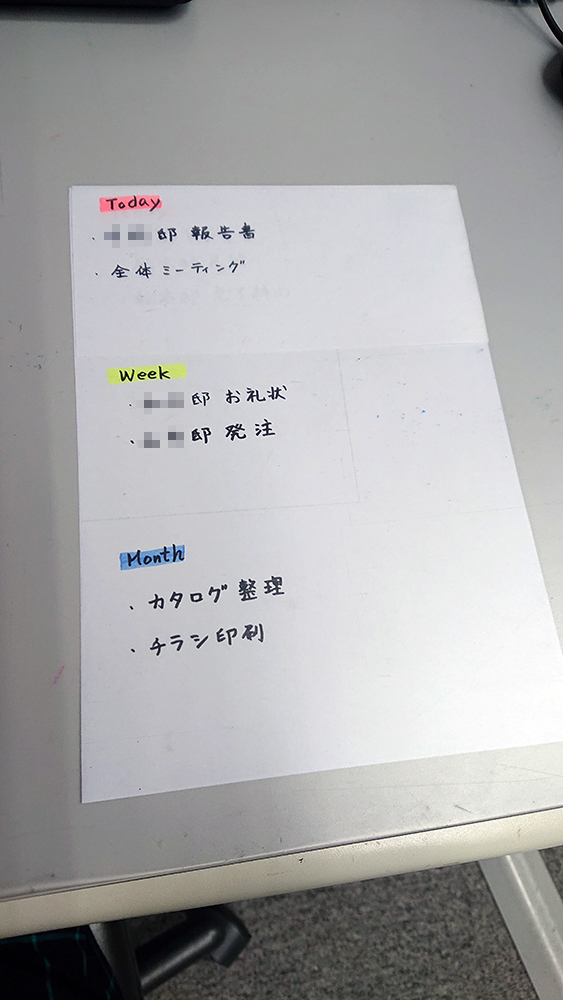 Today
・邸 報告書
・全体ミーティング
Week
・邸 お礼状
・邸 発注
Month
・カタログ整理
・チラシ印刷